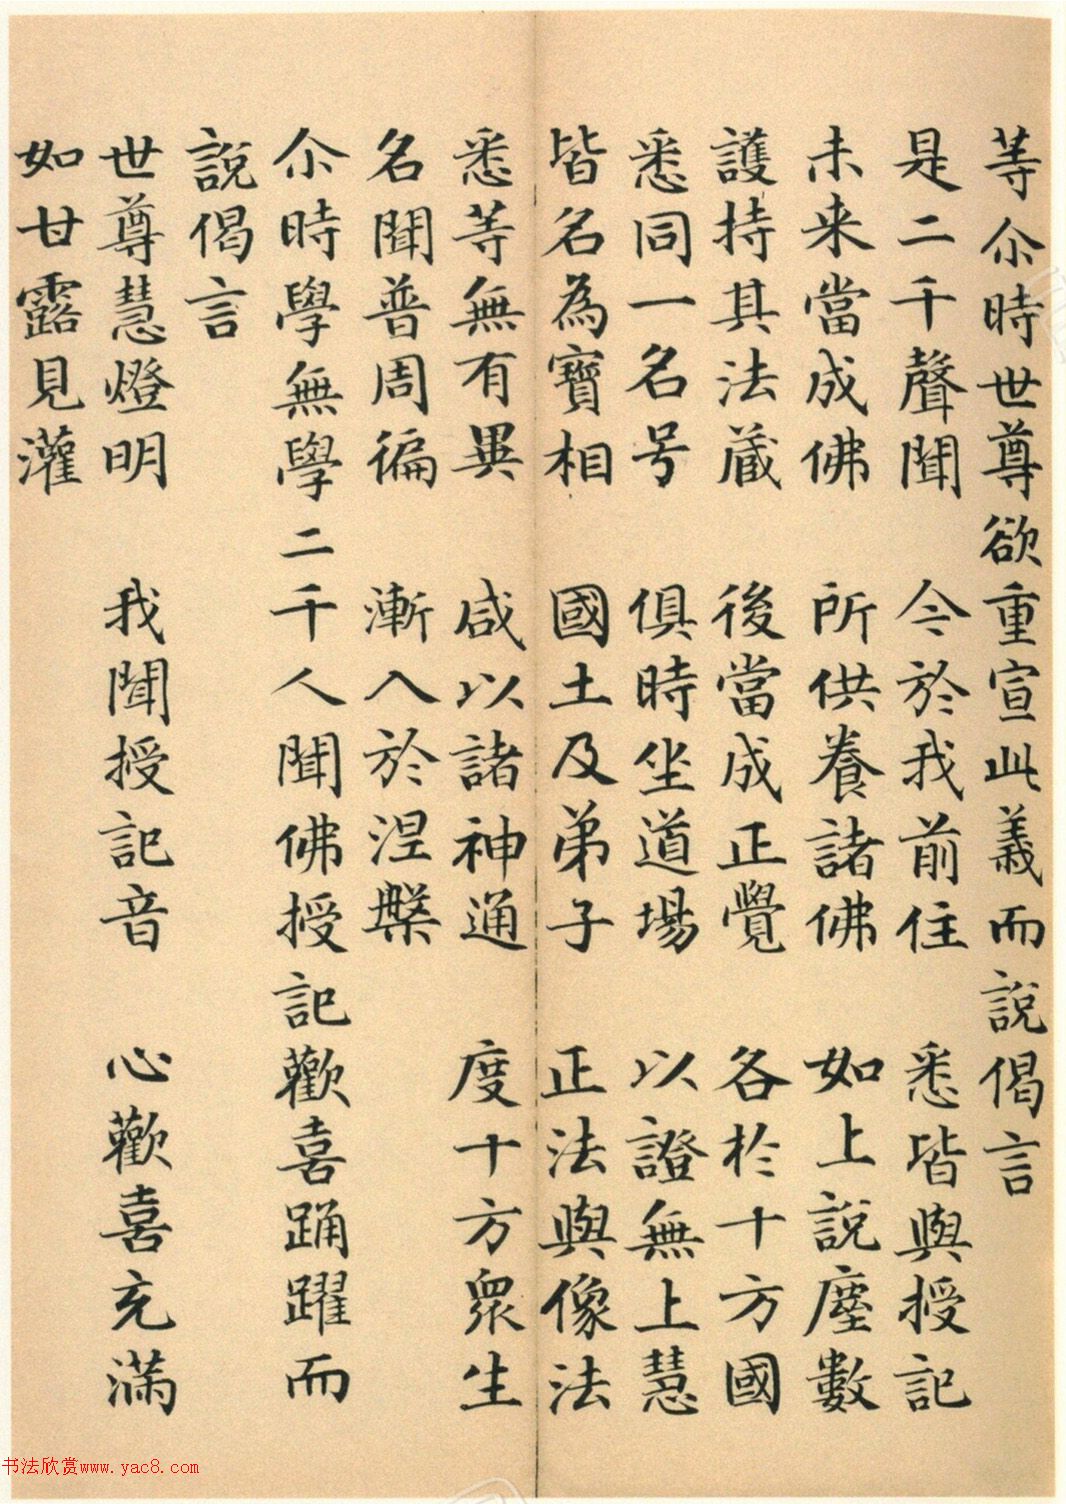 等尒時世尊欲重宣此義而說偈言
是二千聲聞 今於我前住 悉皆與授記
未来當成佛 所供養諸佛 如上說塵數
護持其法藏 後當成正覺 各於十方國
悉同一名号 俱時坐道場 以證無上慧
皆名為寶相 國土及弟子 正法與像法
悉等無有異 咸以諸神通 度十方眾生
名聞普周徧 漸入於涅槃
尒時學無學二千人聞佛授記歡喜踊躍而
說偈言
世尊慧燈明 我聞授記音 心歡喜充滿
如甘露見灌
书法欣赏www.yac8.com